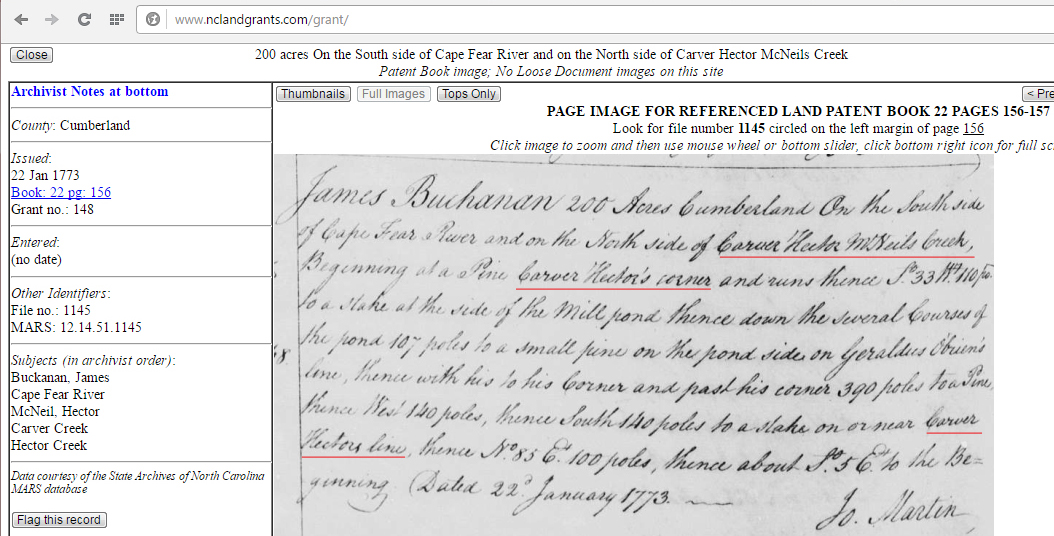 www.nclandgrants.com/grant/
Close
200 acres On the South side of Cape Fear River and on the North side of Carver Hector McNeils Creek
Patent Book image; No Loose Document images on this site
Archivist Notes at bottom
County: Cumberland
Issued:
22 Jan 1773
Book: 22 pg: 156
Grant no.: 148
Entered:
(no date)
Other Identifiers:
File no.: 1145
MARS: 12.14.51.1145
Subjects (in archivist order):
Buckanan, James
Cape Fear River
McNeil, Hector
Carver Creek
Hector Creek
Data courtesy of the State Archives of North Carolina
MARS database
Flag this record
Thumbnails Full Images Tops Only < Pre
PAGE IMAGE FOR REFERENCED LAND PATENT BOOK 22 PAGES 156-157
Look for file number 1145 circled on the left margin of page 156
Click image to zoom and then use mouse wheel or bottom slider, click bottom right icon for full sc
James Buchanan 200 Acres Cumberland On the South side
of Cape Fear River and on the North side of Carver Hector McNeils Creek,
Beginning at a Pine Carver Hector's corner and runs thence So. 33 Wt. 110 po.
to a stake at the side of the Mill pond thence down the several Courses of
the pond 107 poles to a small pine on the pond side on Geraldus Obrien's
line, thence with his to his Corner and past his corner 390 poles to a Pine,
thence West 140 poles, thence South 140 poles to a stake on or near Carver
Hectors line, thence No. 85 Et. 100 poles, thence about So. 5 Et. to the Be=
ginning. Dated 22d. January 1773.
Jo. Martin